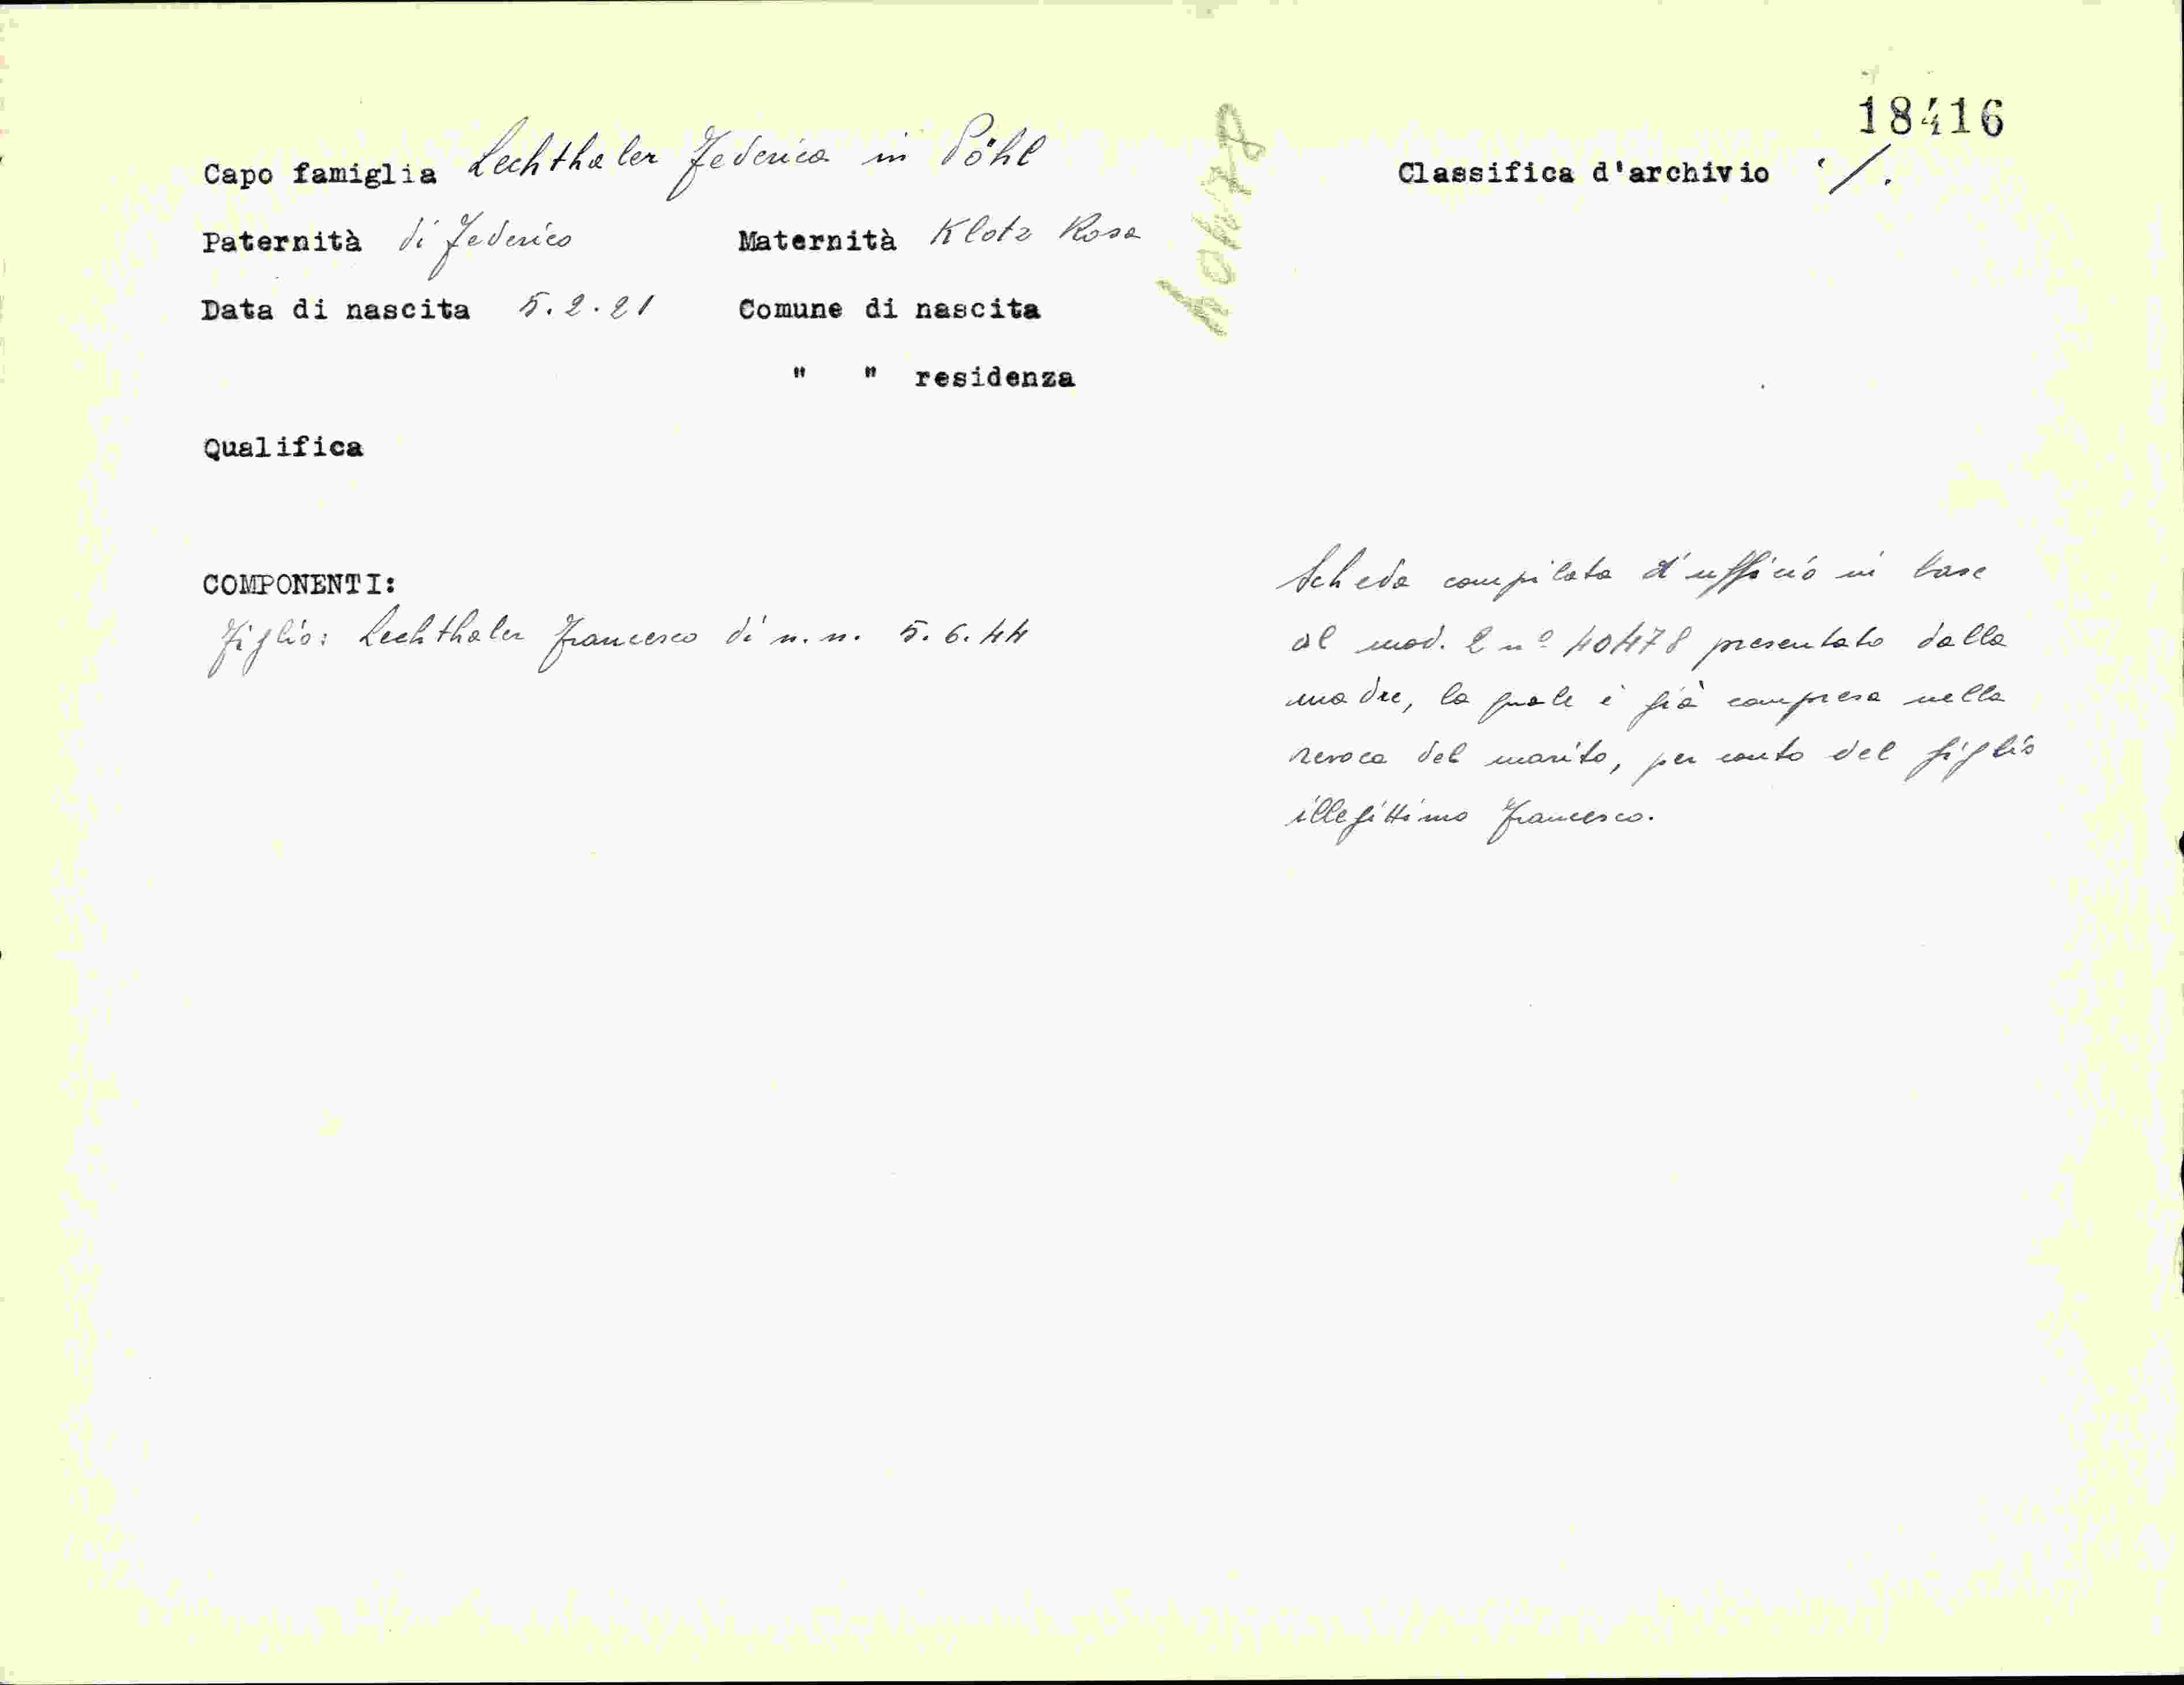 18416
Capo famiglia Lechthaler Federica in Pöhl
Classifica d'archivio /.
Paternità di Federico Maternità Klotz Rosa
Data di nascita 5.2.21 Comune di nascita
" " residenza
Qualifica
40478
COMPONENTI:
Figlio: Lechthaler Francesco di n.n. 5.6.44
Scheda compilata d'ufficio in base
al mod. 2 nº 40478 presentato dalla
madre, la quale è già compresa nella
revoca del marito, per conto del figlio
illegittimo Francesco.